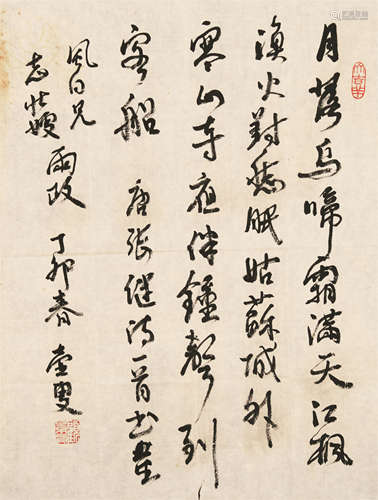 月落烏啼霜滿天江楓
漁火對愁眠姑蘇城外
寒山寺夜半鐘聲到
客船 唐張繼詩一首
風白兄
雨政 丁卯春